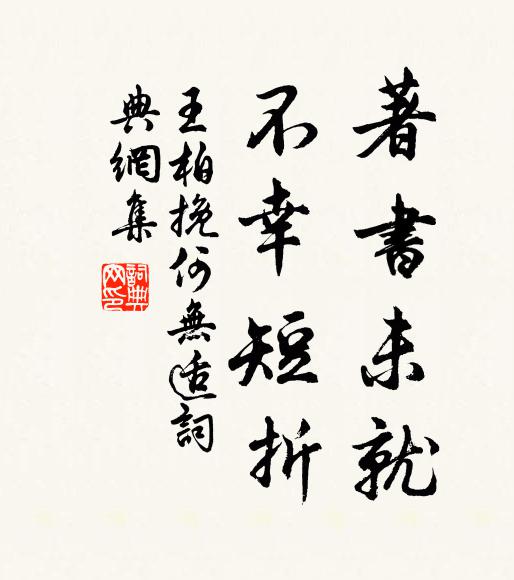 著書未就
不幸短折
王柏挽何無适詞
典網集
詞典
网印